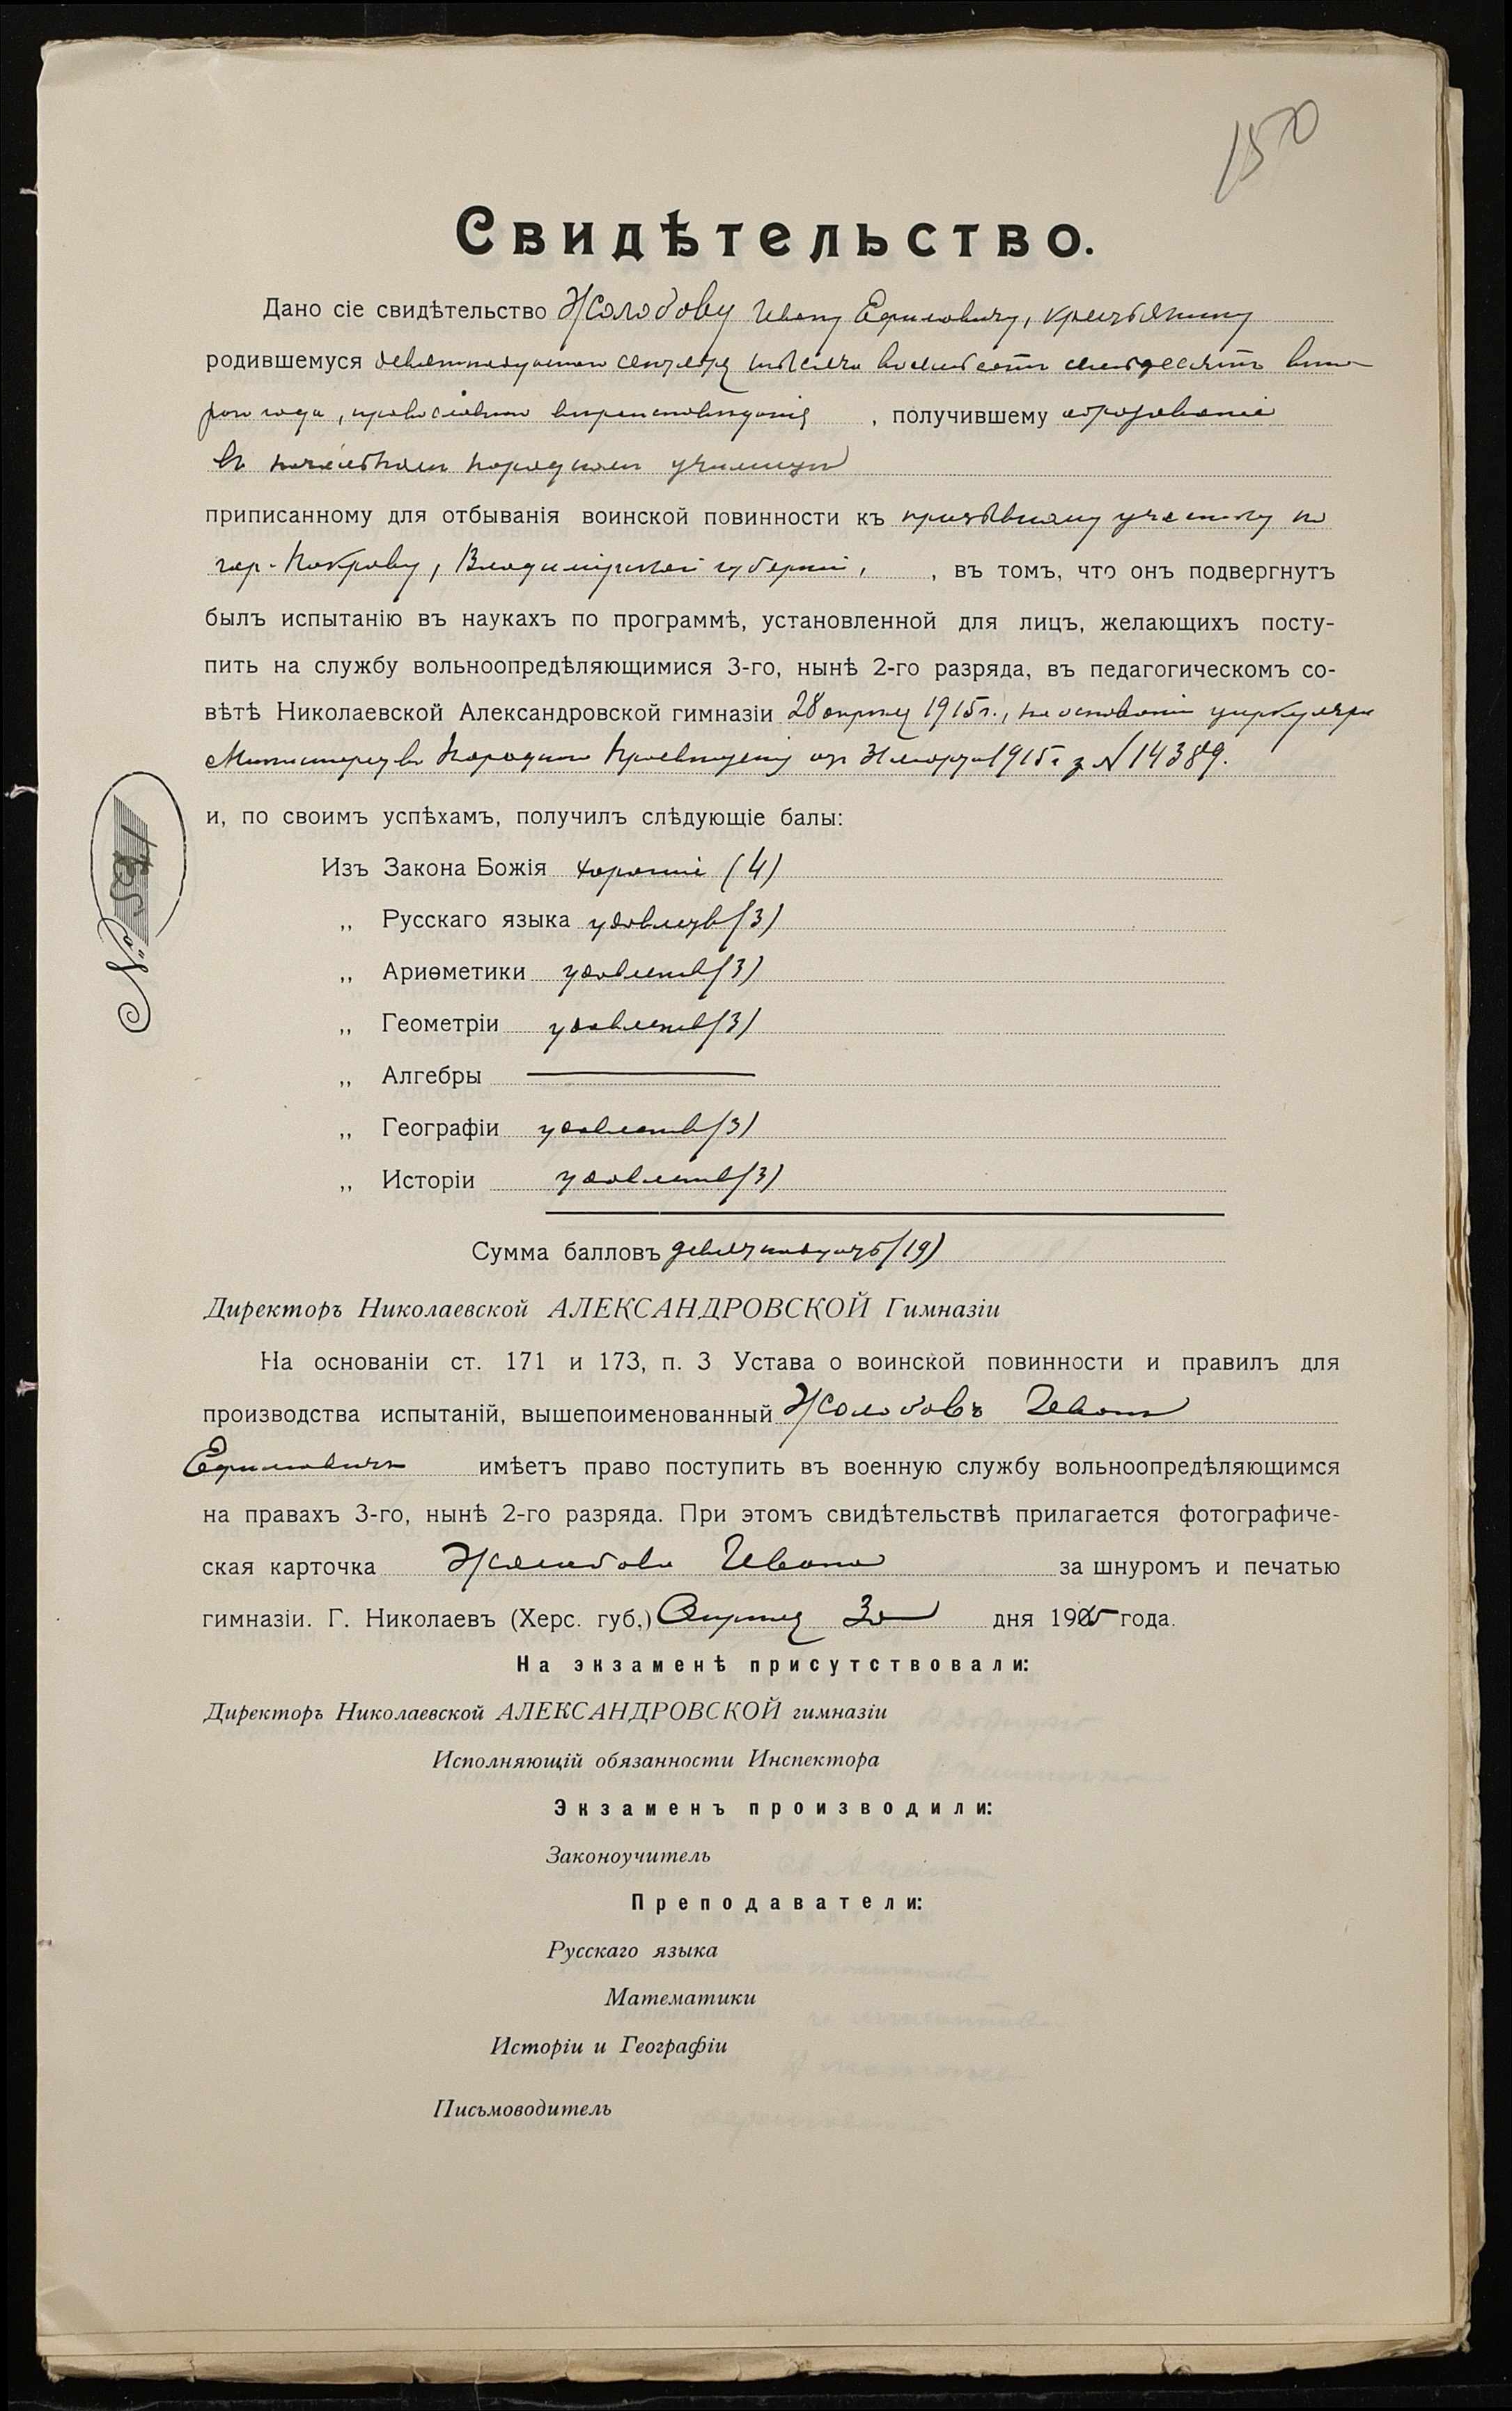 150
Свидѣтельство.
Дано сіе свидѣтельство Жолобову Ивану Ефимовичу, крестьянину
родившемуся девятнадцатаго сентября тысяча восемьсотъ семьдесятъ вто-
рого года, православнаго вѣроисповѣданія, получившему образованіе
въ начальномъ народномъ училищѣ
приписанному для отбыванія воинской повинности къ призывному участку по
гор. Покрову, Владимірской губерніи, , въ томъ, что онъ подвергнутъ
былъ испытанію въ наукахъ по программѣ, установленной для лицъ, желающихъ посту-
пить на службу вольноопредѣляющимися 3-го, нынѣ 2-го разряда, въ педагогическомъ со-
вѣтѣ Николаевской Александровской гимназіи 28 апрѣля 1915 г., на основаніи циркуляра
Министерства Народнаго Просвѣщенія отъ 31 марта 1915 г. за № 14389.
и, по своимъ успѣхамъ, получилъ слѣдующіе балы:
Изъ Закона Божія хорошіе (4)
„ Русскаго языка удовлетв (3)
„ Ариѳметики удовлетв (3)
„ Геометріи удовлетв (3)
„ Алгебры
„ Географіи удовлетв (3)
„ Исторіи удовлетв (3)
Сумма балловъ девятнадцать (19)
№
Директоръ Николаевской АЛЕКСАНДРОВСКОЙ Гимназіи
На основаніи ст. 171 и 173, п. 3 Устава о воинской повинности и правилъ для
производства испытаній, вышепоименованный Жолобовъ Иванъ
Ефимовичъ имѣетъ право поступить въ военную службу вольноопредѣляющимся
на правахъ 3-го, нынѣ 2-го разряда. При этомъ свидѣтельствѣ прилагается фотографиче-
ская карточка Жолобова Ивана за шнуромъ и печатью
гимназіи. Г. Николаевъ (Херс. губ.) Апрѣля 30 дня 1915 года.
На экзаменѣ присутствовали:
Директоръ Николаевской АЛЕКСАНДРОВСКОЙ гимназіи
Исполняющій обязанности Инспектора
Экзаменъ производили:
Законоучитель
Преподаватели:
Русскаго языка
Математики
Исторіи и Географіи
Письмоводитель